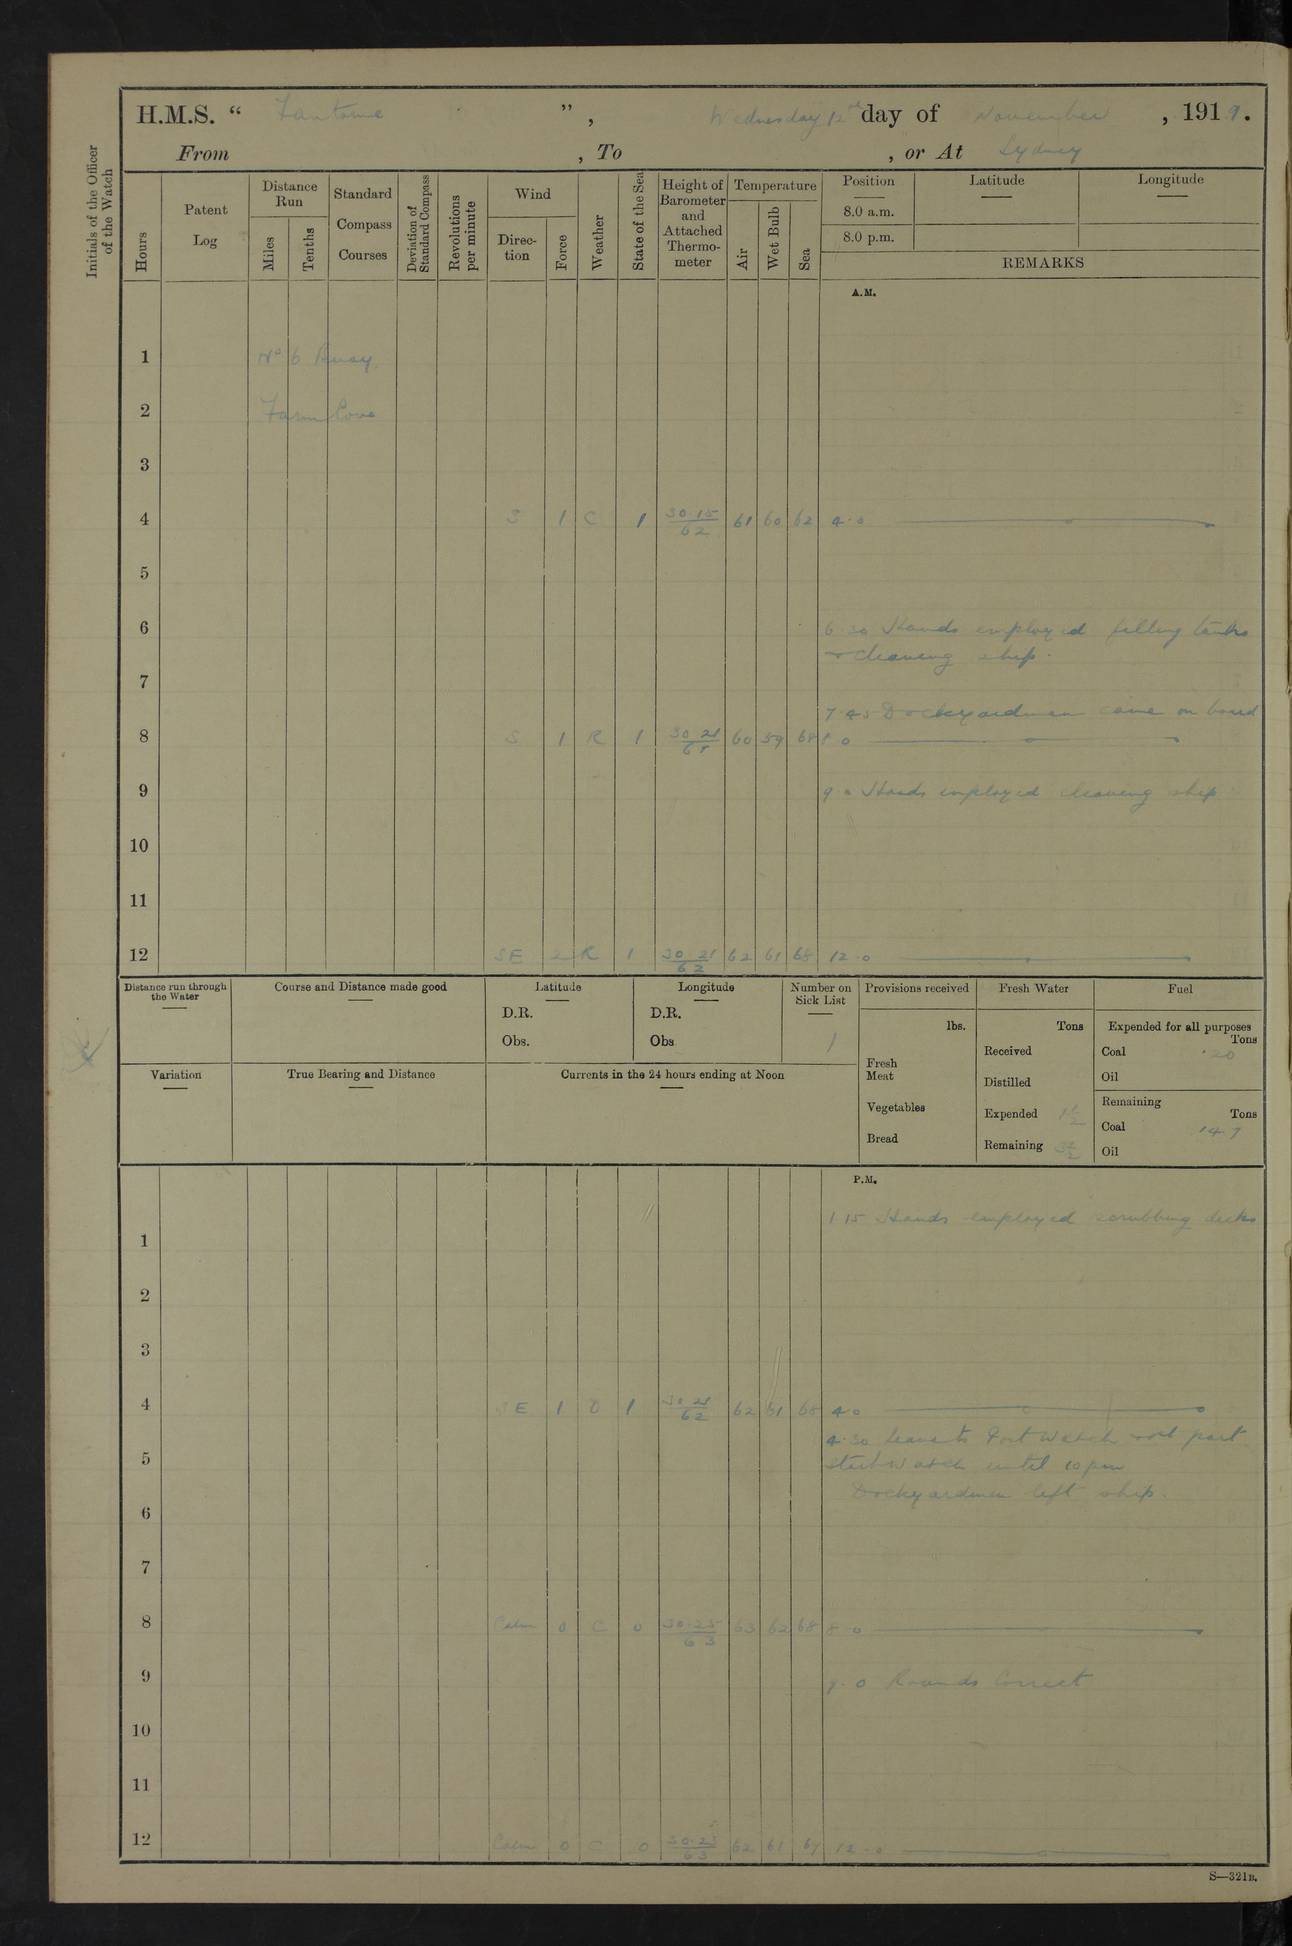 H.M.S. “ Fantome ”, Wednesday 12th day of November, 1919.
From , To , or At Sydney
Initials of the Officer of the Watch
Hours
Patent Log
Distance Run
Miles
Tenths
Standard Compass Courses
Deviation of Standard Compass
Revolutions per minute
Wind
Direc-tion
Force
Weather
State of the Sea
Height of Barometer and Attached Thermo-meter
Temperature
Air
Wet Bulb
Sea
Position Latitude Longitude
8.0 a.m.
8.0 p.m.
REMARKS
A.M.
1 No 6 Buoy
2 Farm Cove
3
4 S 1 C 1 30.15/62 61 60 62 4.0
5
6 6.30 Hands employed filling tanks
& cleaning ship.
7
7.45 Dockyardmen came on board
8 S 1 R 1 60 59 68 8.0
9 9.0 Hands employed cleaning ship
10
11
12 SE 2 R 1 30 21/62 62 61 68 12.0
Distance run through the Water
Course and Distance made good
Latitude
D.R.
Obs.
Longitude
D.R.
Obs
Number on Sick List
1
Provisions received
lbs.
Fresh Meat
Vegetables
Bread
Fresh Water
Tons
Received
Distilled
Expended 1½
Remaining
Fuel
Expended for all purposes
Tons
Coal .20
Oil
Remaining
Tons
Coal 14.7
Oil
Variation
True Bearing and Distance
Currents in the 24 hours ending at Noon
P.M.
1.15 Hands employed scrubbing decks
1
2
3
4 SE 1 O 1 30 21/62 62 61 68 4.0
4.30 Leave to Port Watch & part
5 Starb Watch until 10 pm
Dockyardmen left ship.
6
7
8 Calm 0 C 0 30.25/63 63 62 68 8.0
9 9.0 Rounds Correct
10
11
12 Calm 0 C 0 30.23/63 62 61 67 12.0
S—321B.